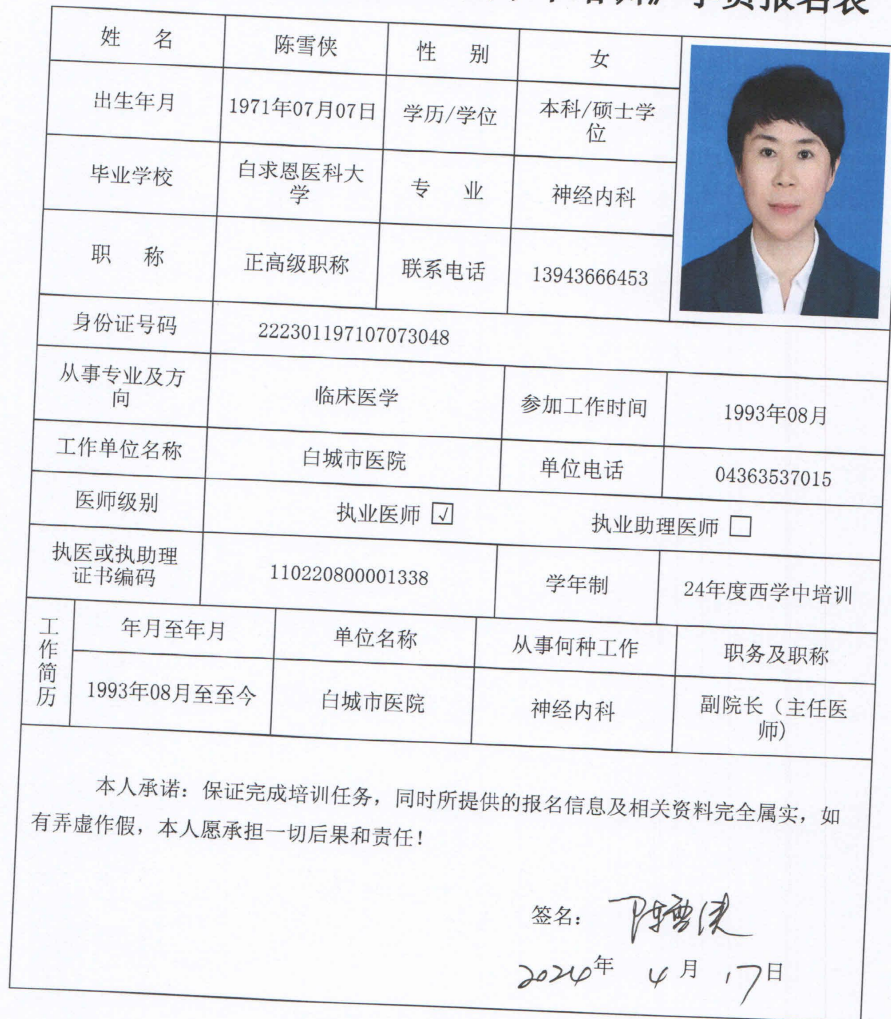 学员报名表
姓 名 陈雪侠 性 别 女
出生年月 1971年07月07日 学历/学位 本科/硕士学
位
毕业学校 白求恩医科大
学 专 业 神经内科
职 称 正高级职称 联系电话 13943666453
身份证号码 222301197107073048
从事专业及方
向 临床医学 参加工作时间 1993年08月
工作单位名称 白城市医院 单位电话 04363537015
医师级别 执业医师 ☑ 执业助理医师 □
执医或执助理
证书编码 110220800001338 学年制 24年度西学中培训
工作简历 年月至年月 单位名称 从事何种工作 职务及职称
1993年08月至至今 白城市医院 神经内科 副院长（主任医
师)
本人承诺：保证完成培训任务，同时所提供的报名信息及相关资料完全属实，如
有弄虚作假，本人愿承担一切后果和责任！
签名：陈雪侠
2024年 4月 17日